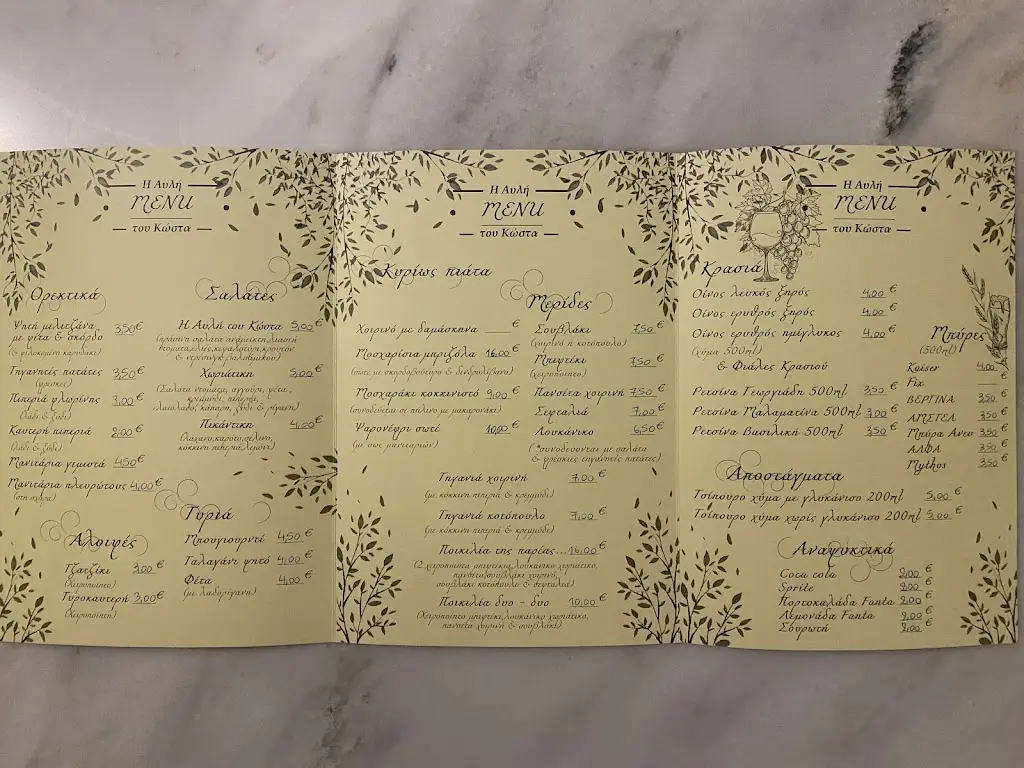 Η Αυλή
MENU
του Κώστα
Ορεκτικά
Ψητή μελιτζάνα 3,50€
με φέτα & σκόρδο
(& ψιλοκομμένο καρυδάκι)
Τηγανητές πατάτες 3,50€
(φρέσκες)
Πιπεριά φλωρίνης 3,00€
(λάδι & ξύδι)
Καυτερή πιπεριά 2,00€
(λάδι & ξύδι)
Μανιτάρια γεμιστά 4,50€
Μανιτάρια πλευρώτους 4,00€
(στη σχάρα)
Αλοιφές
Τζατζίκι 3,00€
(Χειροποίητο)
Τυροκαυτερή 3,00€
(Χειροποίητη)
Σαλάτες
Η Αυλή του Κώστα 5,00€
(πράσινη σαλάτα ανάμεικτη, λιαστή
& ντρέσινγκ βαλσάμικου)
Χωριάτικη 5,00€
(Σαλάτα ντομάτα, αγγούρι, φέτα,
κρεμμύδι, πιπεριά,
ελαιόλαδο, κάπαρη, ξύδι & ρίγανη)
Πικάντικη 4,00€
(λάχανο, καρότο, σέλινο,
κόκκινη πιπεριά, λεμόνι)
Τυριά
Μπουγιουρντί 4,50€
Ταλαγάνι ψητό 4,00€
Φέτα 4,00€
(με λαδορίγανη)
Η Αυλή
MENU
του Κώστα
Κυρίως πιάτα
Χοιρινό με δαμάσκηνα €
Μοσχαρίσια μπριζόλα 16,00€
(σωτέ με σκορδοβούτυρο & δενδρολίβανο)
Μοσχαράκι κοκκινιστό 9,00€
(συνοδεύεται σε πήλινο με μακαρονάκι)
Ψαρονέφρι σωτέ 10,00€
(με σως μανιταριών)
Μερίδες
Σουβλάκι 7,50€
(χοιρινό ή κοτόπουλο)
Μπιφτέκι 7,50€
(χειροποίητο)
Πανσέτα χοιρινή 7,50€
Σεφταλιά 7,00€
Λουκάνικο 6,50€
(*συνοδεύονται με σαλάτα
& φρέσκιες τηγανητές πατάτες)
Τηγανιά χοιρινή 7,00€
(με κόκκινη πιπεριά & κρεμμύδι)
Τηγανιά κοτόπουλο 7,00€
(με κόκκινη πιπεριά & κρεμμύδι)
Ποικιλία της παρέας...16,00€
(2 χειροποίητα μπιφτέκια, λουκάνικο χωριάτικο,
πανσέτα, σουβλάκι χοιρινό,
σουβλάκι κοτόπουλο & σεφταλιά)
Ποικιλία δυο - δυο 10,00€
(Χειροποίητο μπιφτέκι, λουκάνικο χωριάτικο,
πανσέτα χοιρινή & σουβλάκι)
Η Αυλή
MENU
του Κώστα
Κρασιά
Οίνος λευκός ξηρός 4,00€
Οίνος ερυθρός ξηρός 4,00€
Οίνος ερυθρός ημίγλυκος 4,00€
(χύμα 500ml)
& Φιάλες Κρασιού
Ρετσίνα Γεωργιάδη 500ml 3,50€
Ρετσίνα Μαλαματίνα 500ml 3,00€
Ρετσίνα Βασιλική 500ml 3,50€
Μπύρες
(500ml)
Kaiser 4,00€
Fix €
ΒΕΡΓΙΝΑ 3,50€
ΑΜΣΤΕΛ 3,50€
Μπύρα Ανευ 3,50€
ΑΛΦΑ 3,50€
Mythos 3,50€
Αποστάγματα
Τσίπουρο χύμα με γλυκάνισο 200ml 5,00€
Τσίπουρο χύμα χωρίς γλυκάνισο 200ml 5,00€
Αναψυκτικά
Coca cola 2,00€
Sprite 2,00€
Πορτοκαλάδα Fanta 2,00€
Λεμονάδα Fanta 2,00€
Σουρωτή 2,00€